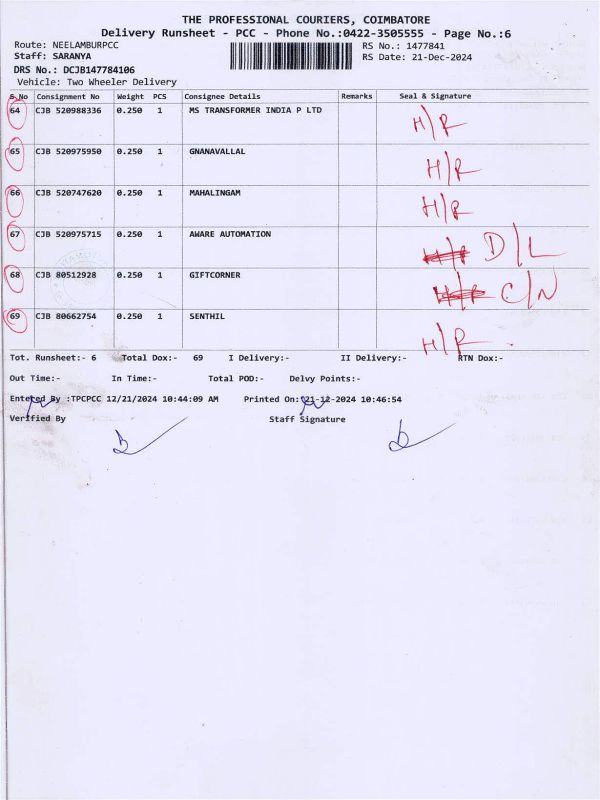 THE PROFESSIONAL COURIERS, COIMBATORE
Delivery Runsheet - PCC - Phone No.:0422-3505555 - Page No.:6
Route: NEELAMBURPCC RS No.: 1477841
Staff: SARANYA RS Date: 21-Dec-2024
DRS No.: DCJB147784106
Vehicle: Two Wheeler Delivery
S.No Consignment No Weight PCS Consignee Details Remarks Seal & Signature
64 CJB 520988336 0.250 1 MS TRANSFORMER INDIA P LTD H/R
65 CJB 520975950 0.250 1 GNANAVALLAL H/R
66 CJB 520747620 0.250 1 MAHALINGAM H/R
67 CJB 520975715 0.250 1 AWARE AUTOMATION H/R D/L
68 CJB 80512928 0.250 1 GIFTCORNER H/R C/N
69 CJB 80662754 0.250 1 SENTHIL H/R.
Tot. Runsheet:- 6 Total Dox:- 69 I Delivery:- II Delivery:- RTN Dox:-
Out Time:- In Time:- Total POD:- Delvy Points:-
Entered By :TPCPCC 12/21/2024 10:44:09 AM Printed On:21-12-2024 10:46:54
Verified By Staff Signature